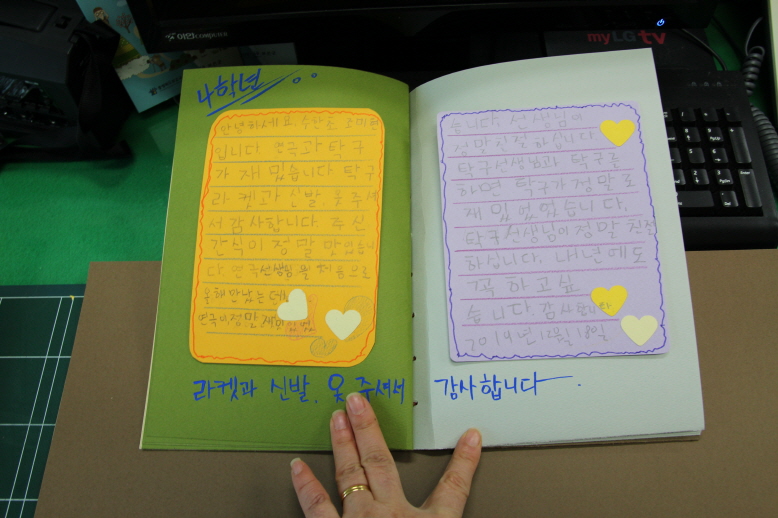 4학년
안녕하세요. 수산초
입니다. 연극과 탁구
가 재밌습니다. 탁구
라켓과 신발, 옷 주셔
서 감사합니다. 주신
간식이 정말 맛있습니
다. 연극선생님을 처음으로
올해 만났는데
연극이 정말 재미
습니다. 선생님이
정말 친절하십니다.
탁구선생님과 탁구를
하면 탁구가 정말로
재밌었습니다.
탁구선생님이 정말 친절
하십니다. 내년에도
꼭 하고싶
습니다. 감사합니다
2014년 12월 18일
라켓과 신발, 옷 주셔서 감사합니다.
myLGtv